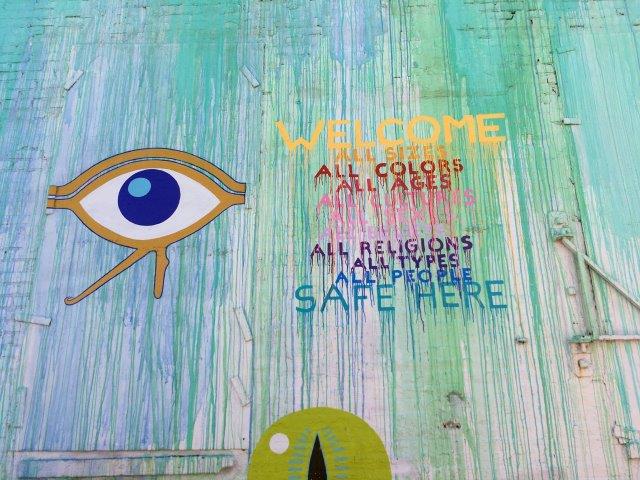 WELCOME
ALL SIZES
ALL COLORS
ALL AGES
ALL CULTURES
ALL
ALL
ALL RELIGIONS
ALL TYPES
ALL PEOPLE
SAFE HERE